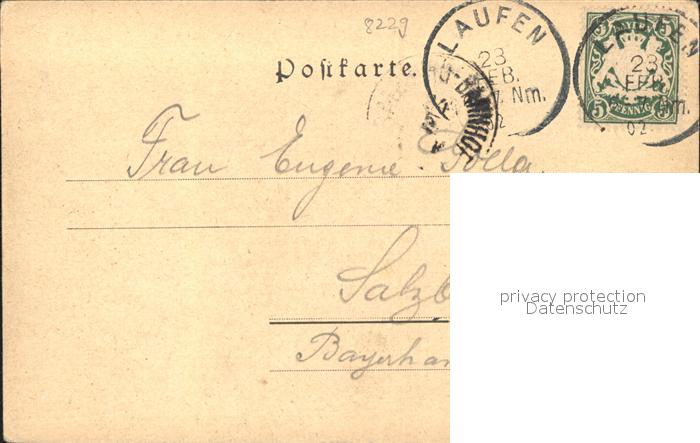 8229
LAUFEN
23
FEB.
7 Nm.
02
LAUFEN
23
FEB
7 Nm.
02
BAYERN
5 5
PFENNIG
BAHNHOF
Postkarte.
Frau Eugenie
Salzb
Bayerha
privacy protection
Datenschutz